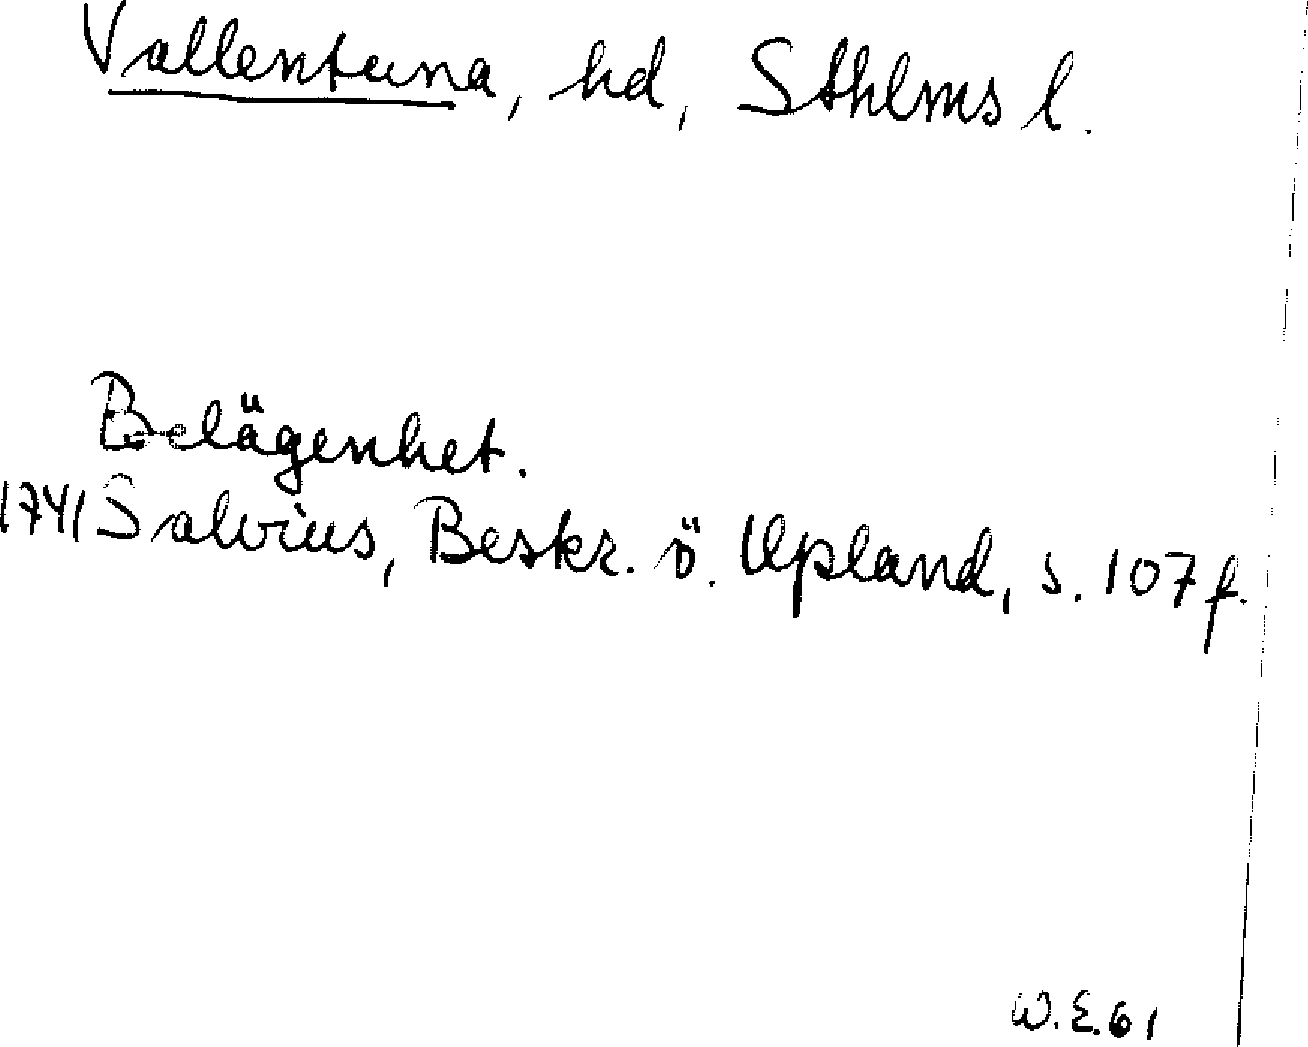 Vallentuna, hd, Sthlms l.
Belägenhet.
1741 Salvius, Beskr. ö. Upland, s. 107 f.
W.E. 61